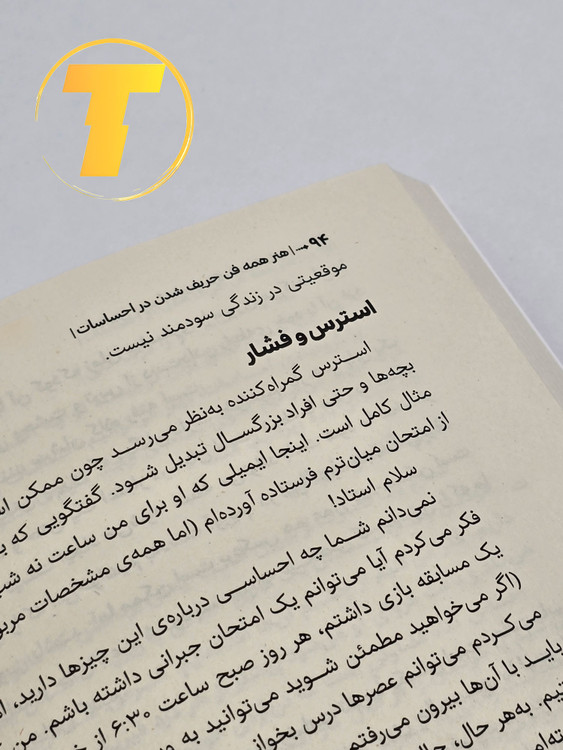 T
۹۴ → | هنر همه فن حریف شدن در احساسات |
موقعیتی در زندگی سودمند نیست.
استرس و فشار
استرس گمراه‌کننده به‌نظر می‌رسد چون ممکن
بچه‌ها و حتی افراد بزرگسال تبدیل شود. گفتگویی که
مثال کامل است. اینجا ایمیلی که او برای من ساعت نه
از امتحان میان‌ترم فرستاده آورده‌ام (اما همه‌ی مشخصات
سلام استاد!
نمی‌دانم شما چه احساسی درباره‌ی این چیزها دارید،
فکر می‌کردم آیا می‌توانم یک امتحان جبرانی داشته باشم. من
یک مسابقه بازی داشتم، هر روز صبح ساعت ۶:۳۰ از
(اگر می‌خواهید مطمئن شوید می‌توانید به
می‌کردم می‌توانم عصرها درس
باید با آن‌ها بیرون می‌رفتم
به‌هر حال،